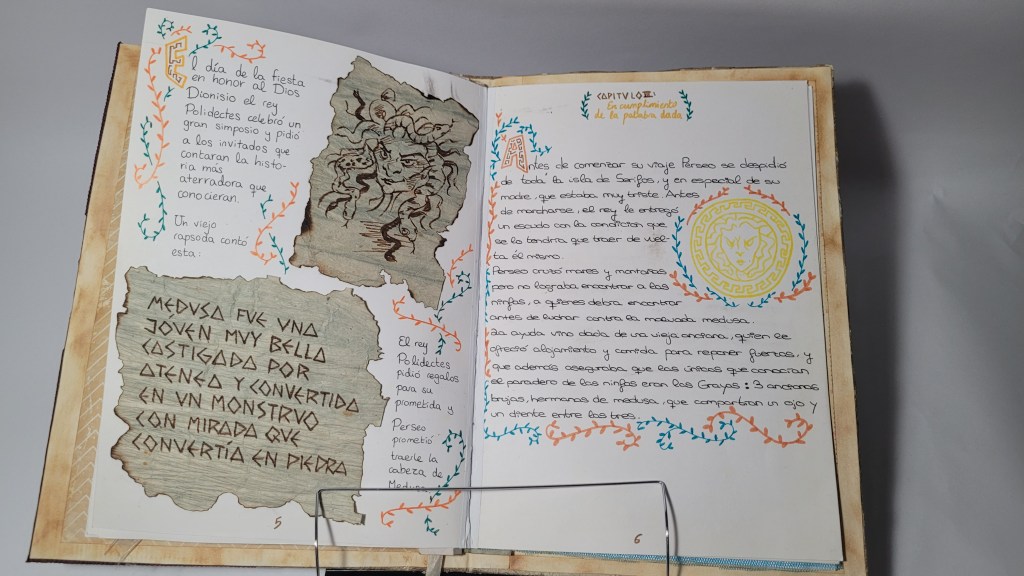 El día de la fiesta
en honor al Dios
Dionisio el rey
Polidectes celebró un
gran simposio y pidió
a los invitados que
contaran la histo-
ria más
aterradora que
conocieran.
Un viejo
rapsoda contó
esta:
MEDUSA FUE UNA
JOVEN MUY BELLA
CASTIGADA POR
ATENEA Y CONVERTIDA
EN UN MONSTRUO
CON MIRADA QUE
CONVERTÍA EN PIEDRA
El rey
Polidectes
pidió regalos
para su
prometida y
Perseo
prometió
traerle la
cabeza de
Medusa.
5
CAPITULO III:
En cumplimiento
de la palabra dada
Antes de comenzar su viaje Perseo se despidió
de toda la isla de Serifos, y en especial de su
madre, que estaba muy triste. Antes
de marcharse, el rey le entregó
un escudo con la condición que
se la tendría que traer de vuel-
ta él mismo.
Perseo cruzó mares y montañas
pero no lograba encontrar a las
ninfas, a quienes debía encontrar
antes de luchar contra la malvada medusa.
La ayuda vino dada de una vieja anciana, quien le
ofreció alojamiento y comida para reponer fuerzas, y
que además aseguraba que las únicas que conocían
el paradero de las ninfas eran las Grayas: 3 ancianas
brujas, hermanas de medusa, que compartían un ojo y
un diente entre las tres.
6